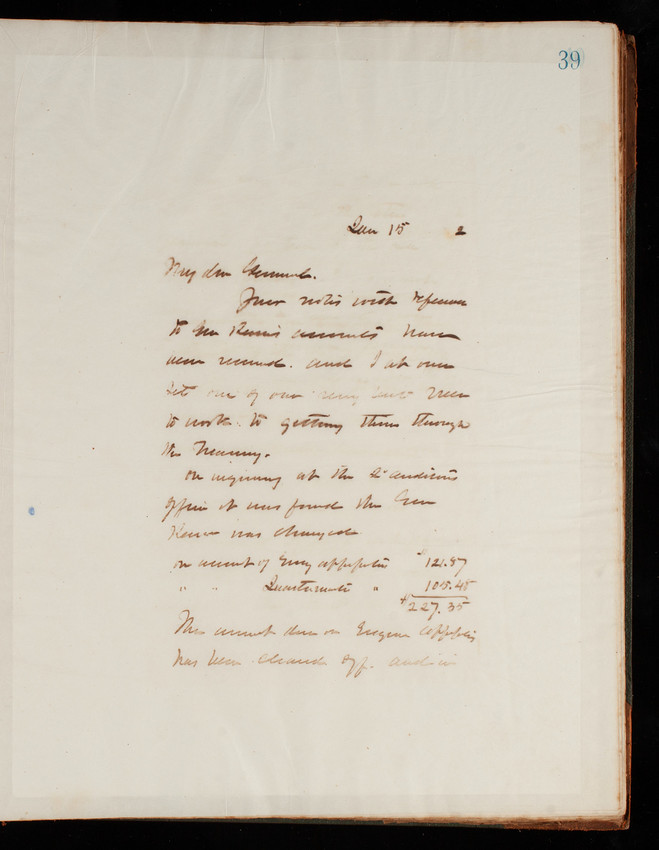 39
Jan 15 2
My dear General.
Your notes with reference
to Gen accounts have
been received. and I at once
set one of our men
to work. to getting them through
the Treasury.
On inquiring at the 2d auditors
office it was found the Gen
was charged
on account of Eng appropriation $121.87
" " " 105.48
$227.35
The amount due on Engineer
has been off. and